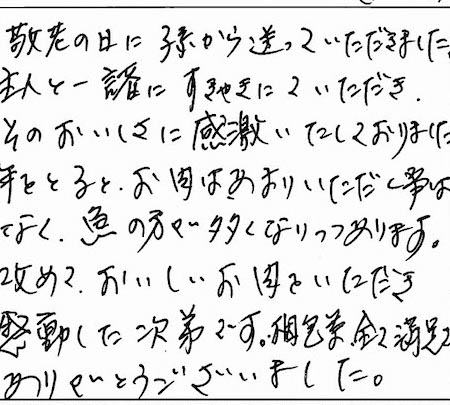 敬老の日に孫から送っていただきました。
主人と一諸にすきやきにていただき、
そのおいしさに感激いたしておりました
年をとると、お肉はあまりいただく事は
なく、魚の方が多くなりつつあります。
改めて、おいしいお肉をいただき
感動した次第です。相包等、全て満足で
ありがとうございました。